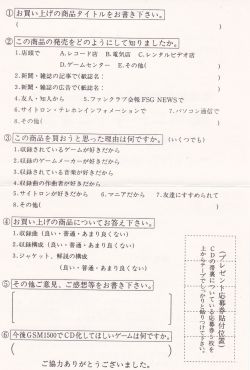 ①お買い上げの商品タイトルをお書き下さい。
(
②この商品の発売をどのようにして知りましたか。
1.店頭で A.レコード店 B.電気店 C.レンタルビデオ店
D.ゲームセンター E.その他(
2.新聞・雑誌の記事で(紙誌名:
3.新聞・雑誌の広告で(紙誌名:
4.友人・知人から 5.ファンクラブ会報FSG NEWSで
6.サイトロン・テレホンインフォメーションで 7.パソコン通信で
8.その他(
③この商品を買おうと思った理由は何ですか。(いくつでも)
1.収録されているゲームが好きだから
2.収録のゲームメーカーが好きだから
3.収録されている音楽が好きだから
4.収録曲の作曲者が好きだから
5.サイトロンが好きだから 6.マニアだから 7.友達にすすめられて
8.その他(
④お買い上げの商品についてお答え下さい。
1.収録曲(良い・普通・あまり良くない)
2.収録構成(良い・普通・あまり良くない)
3.ジャケット、解説の構成
(良い・普通・あまり良くない)
⑤その他ご意見、ご感想等をお書き下さい。
⑥今後GSM1500でCD化してほしいゲームは何ですか。
ご協力ありがとうございました。
(プレゼント応募券貼付位置)
CDの帯裏についている応募券り枚を
上からテープでしっかりと貼りつけて下さい。